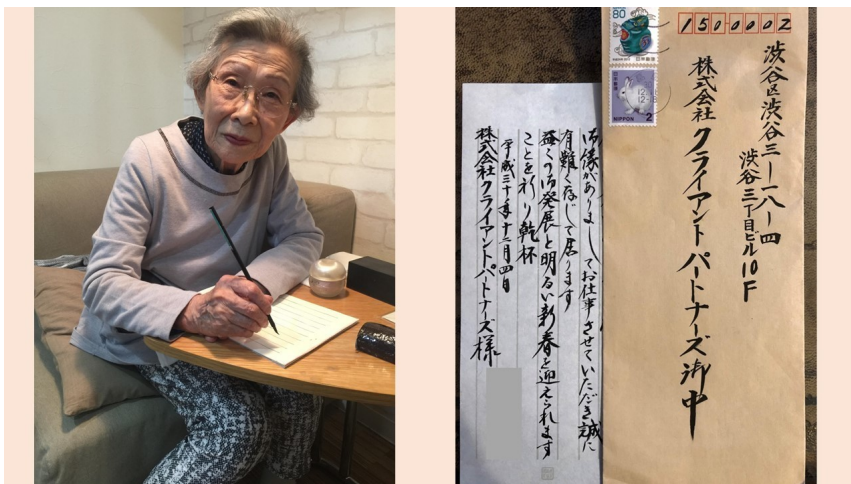 1500002
渋谷区渋谷三ー一八ー四
渋谷三丁目ビル10F
株式会社クライアントパートナーズ御中
80
日本郵便
NIPPON 2
御縁がありましてお仕事させていただき誠に
有難く存じて居ります
益々の御発展と明るい新春を迎えられます
ことを祈り乾杯
平成三十年十二月四日
株式会社クライアントパートナーズ様